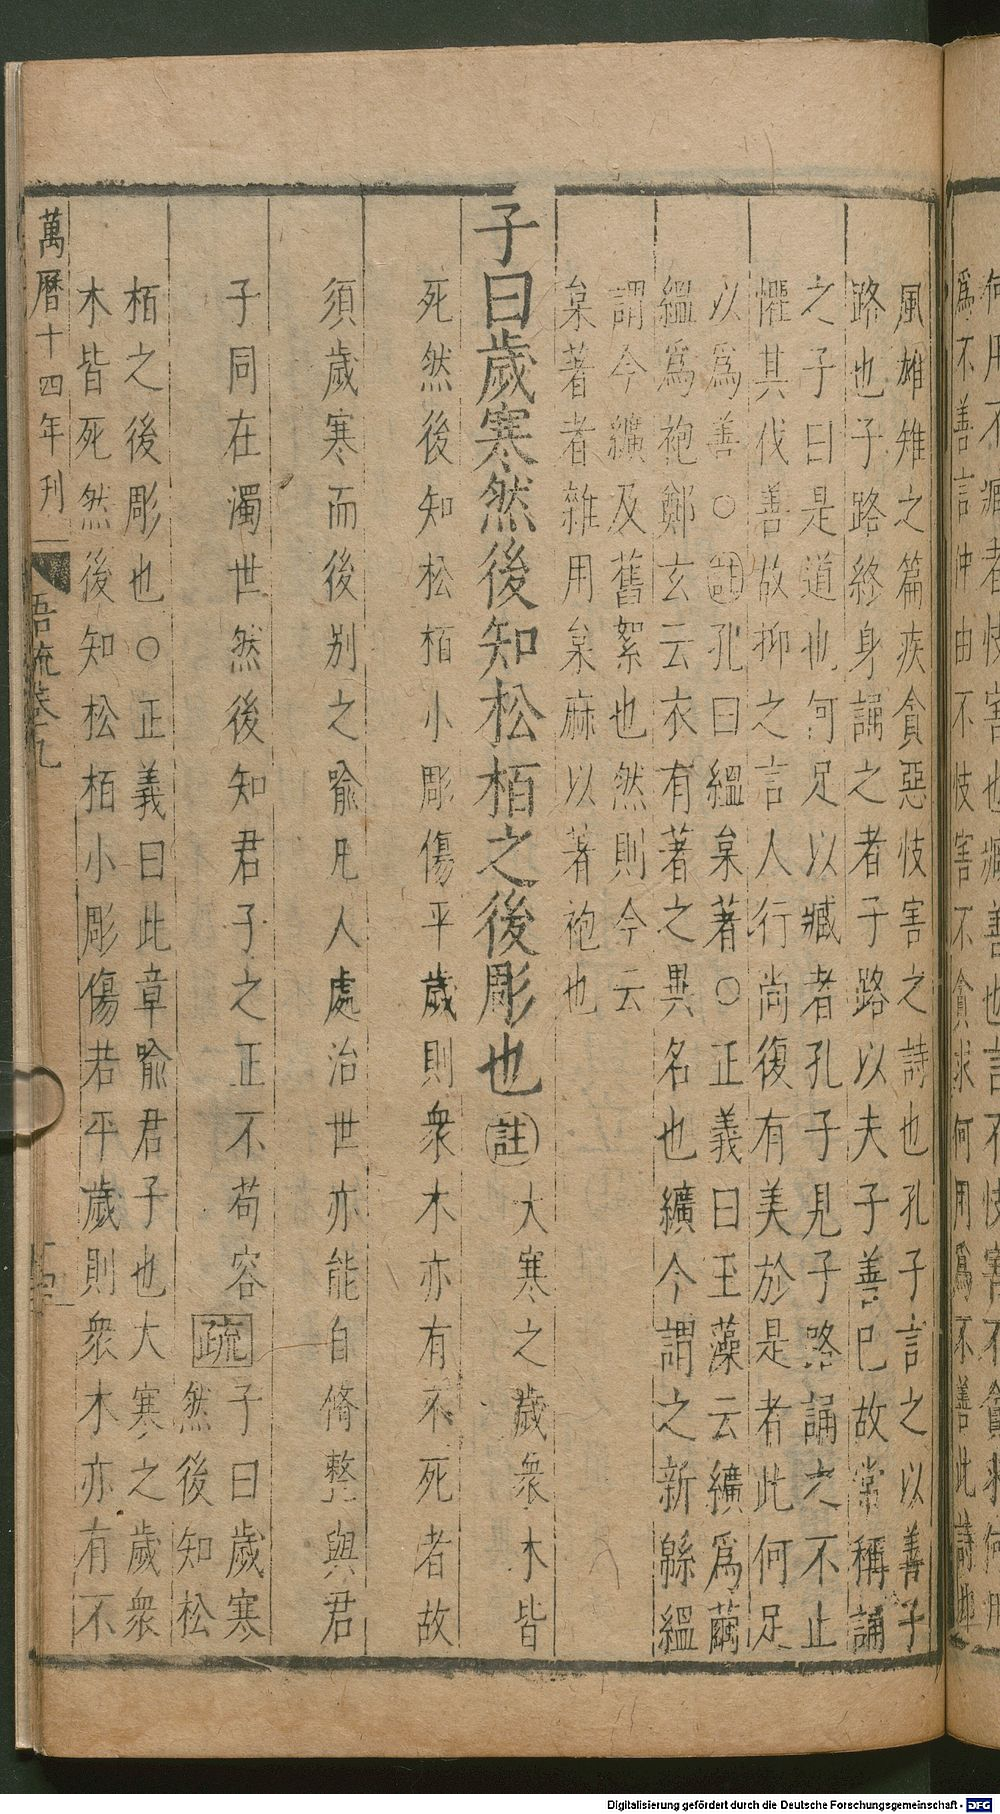 何用不臧者忮害也臧善也言不忮害不貪求何用
爲不善言仲由不忮害不貪求何用爲不善此詩邶
風雄雉之篇疾貪惡忮害之詩也孔子言之以善子
路也子路終身誦之者子路以夫子善巳故常稱誦
之子曰是道也何足以臧者孔子見子路誦之不止
懼其伐善故抑之言人行尚復有美於是者此何足
以爲善○註孔曰縕枲著○正義曰玉藻云纊爲繭
縕爲袍鄭玄云衣有著之異名也纊今謂之新緜縕
謂今纊及舊絮也然則今云
枲著者雜用枲麻以著袍也
子曰歲寒然後知松栢之後彫也註大寒之歲衆木皆
死然後知松栢小彫傷平歲則衆木亦有不死者故
須歲寒而後别之喻凡人處治世亦能自脩整與君
子同在濁世然後知君子之正不苟容疏子曰歲寒
然後知松
栢之後彫也○正義曰此章喻君子也大寒之歲衆
木皆死然後知松栢小彫傷若平歲則衆木亦有不
萬曆十四年刋
吾疏卷九
十四
Digitalisierung gefördert durch die Deutsche Forschungsgemeinschaft - DFG